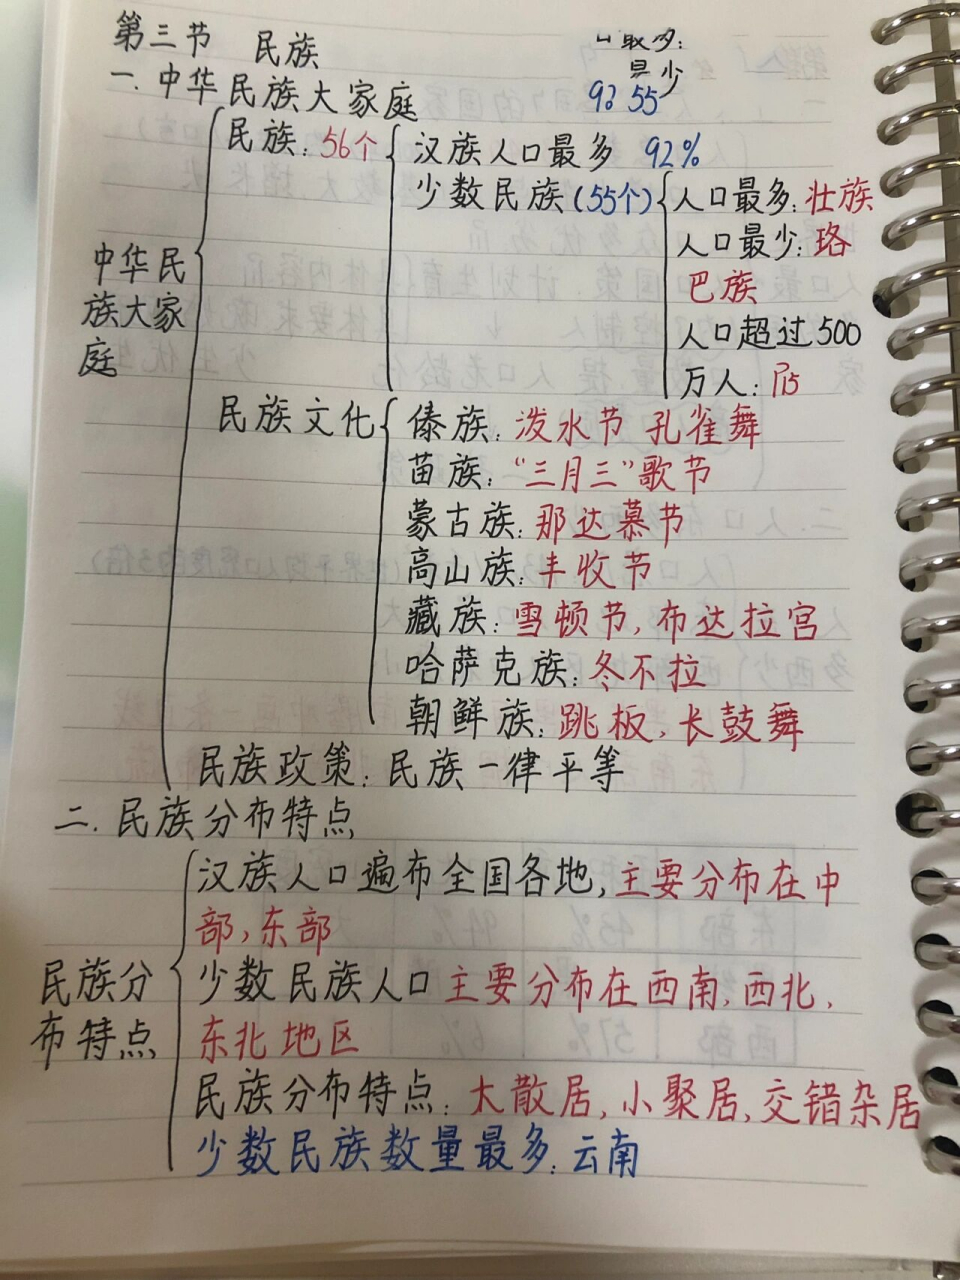 第三节 民族
最多:
92 55
一.中华民族大家庭
民族:56个
汉族人口最多 92%
少数民族(55个)
人口最多:壮族
人口最少:珞
巴族
人口超过500
万人:
中华民
族大家
庭
民族文化
傣族:泼水节 孔雀舞
苗族:“三月三”歌节
蒙古族:那达慕节
高山族:丰收节
藏族:雪顿节,布达拉宫
哈萨克族:冬不拉
朝鲜族:跳板,长鼓舞
民族政策:民族一律平等
二.民族分布特点
汉族人口遍布全国各地,主要分布在中
部,东部
民族分
布特点
少数民族人口主要分布在西南,西北,
东北地区
民族分布特点:大散居,小聚居,交错杂居
少数民族数量最多:云南